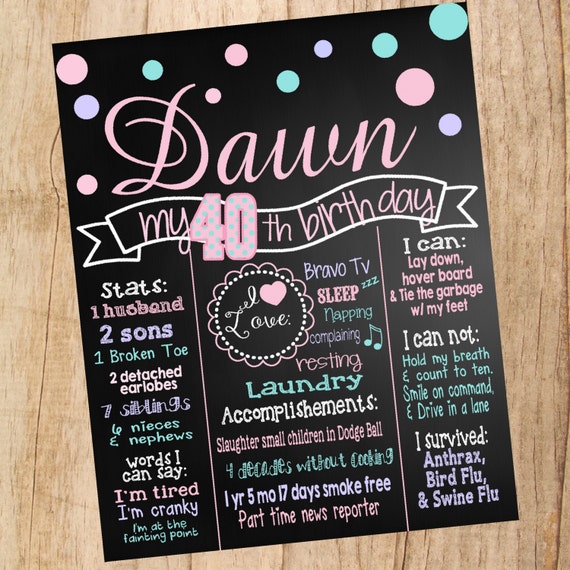 Dawn
my 40th birthday
Stats:
1 husband
2 sons
1 Broken Toe
2 detached
earlobes
7 siblings
6 nieces
& nephews
words I
can say:
I'm tired
I'm cranky
I'm at the
fainting point
I
Love:
Bravo Tv
SLEEP zzz
Napping
complaining
resting
Laundry
Accomplishments:
Slaughter small children in Dodge Ball
4 decades without cooking
1 yr 5 mo 17 days smoke free
Part time news reporter
I can:
Lay down,
hover board
& Tie the garbage
w/ my feet
I can not:
Hold my breath
& count to ten.
Smile on command,
& Drive in a lane
I survived:
Anthrax,
Bird Flu,
& Swine Flu